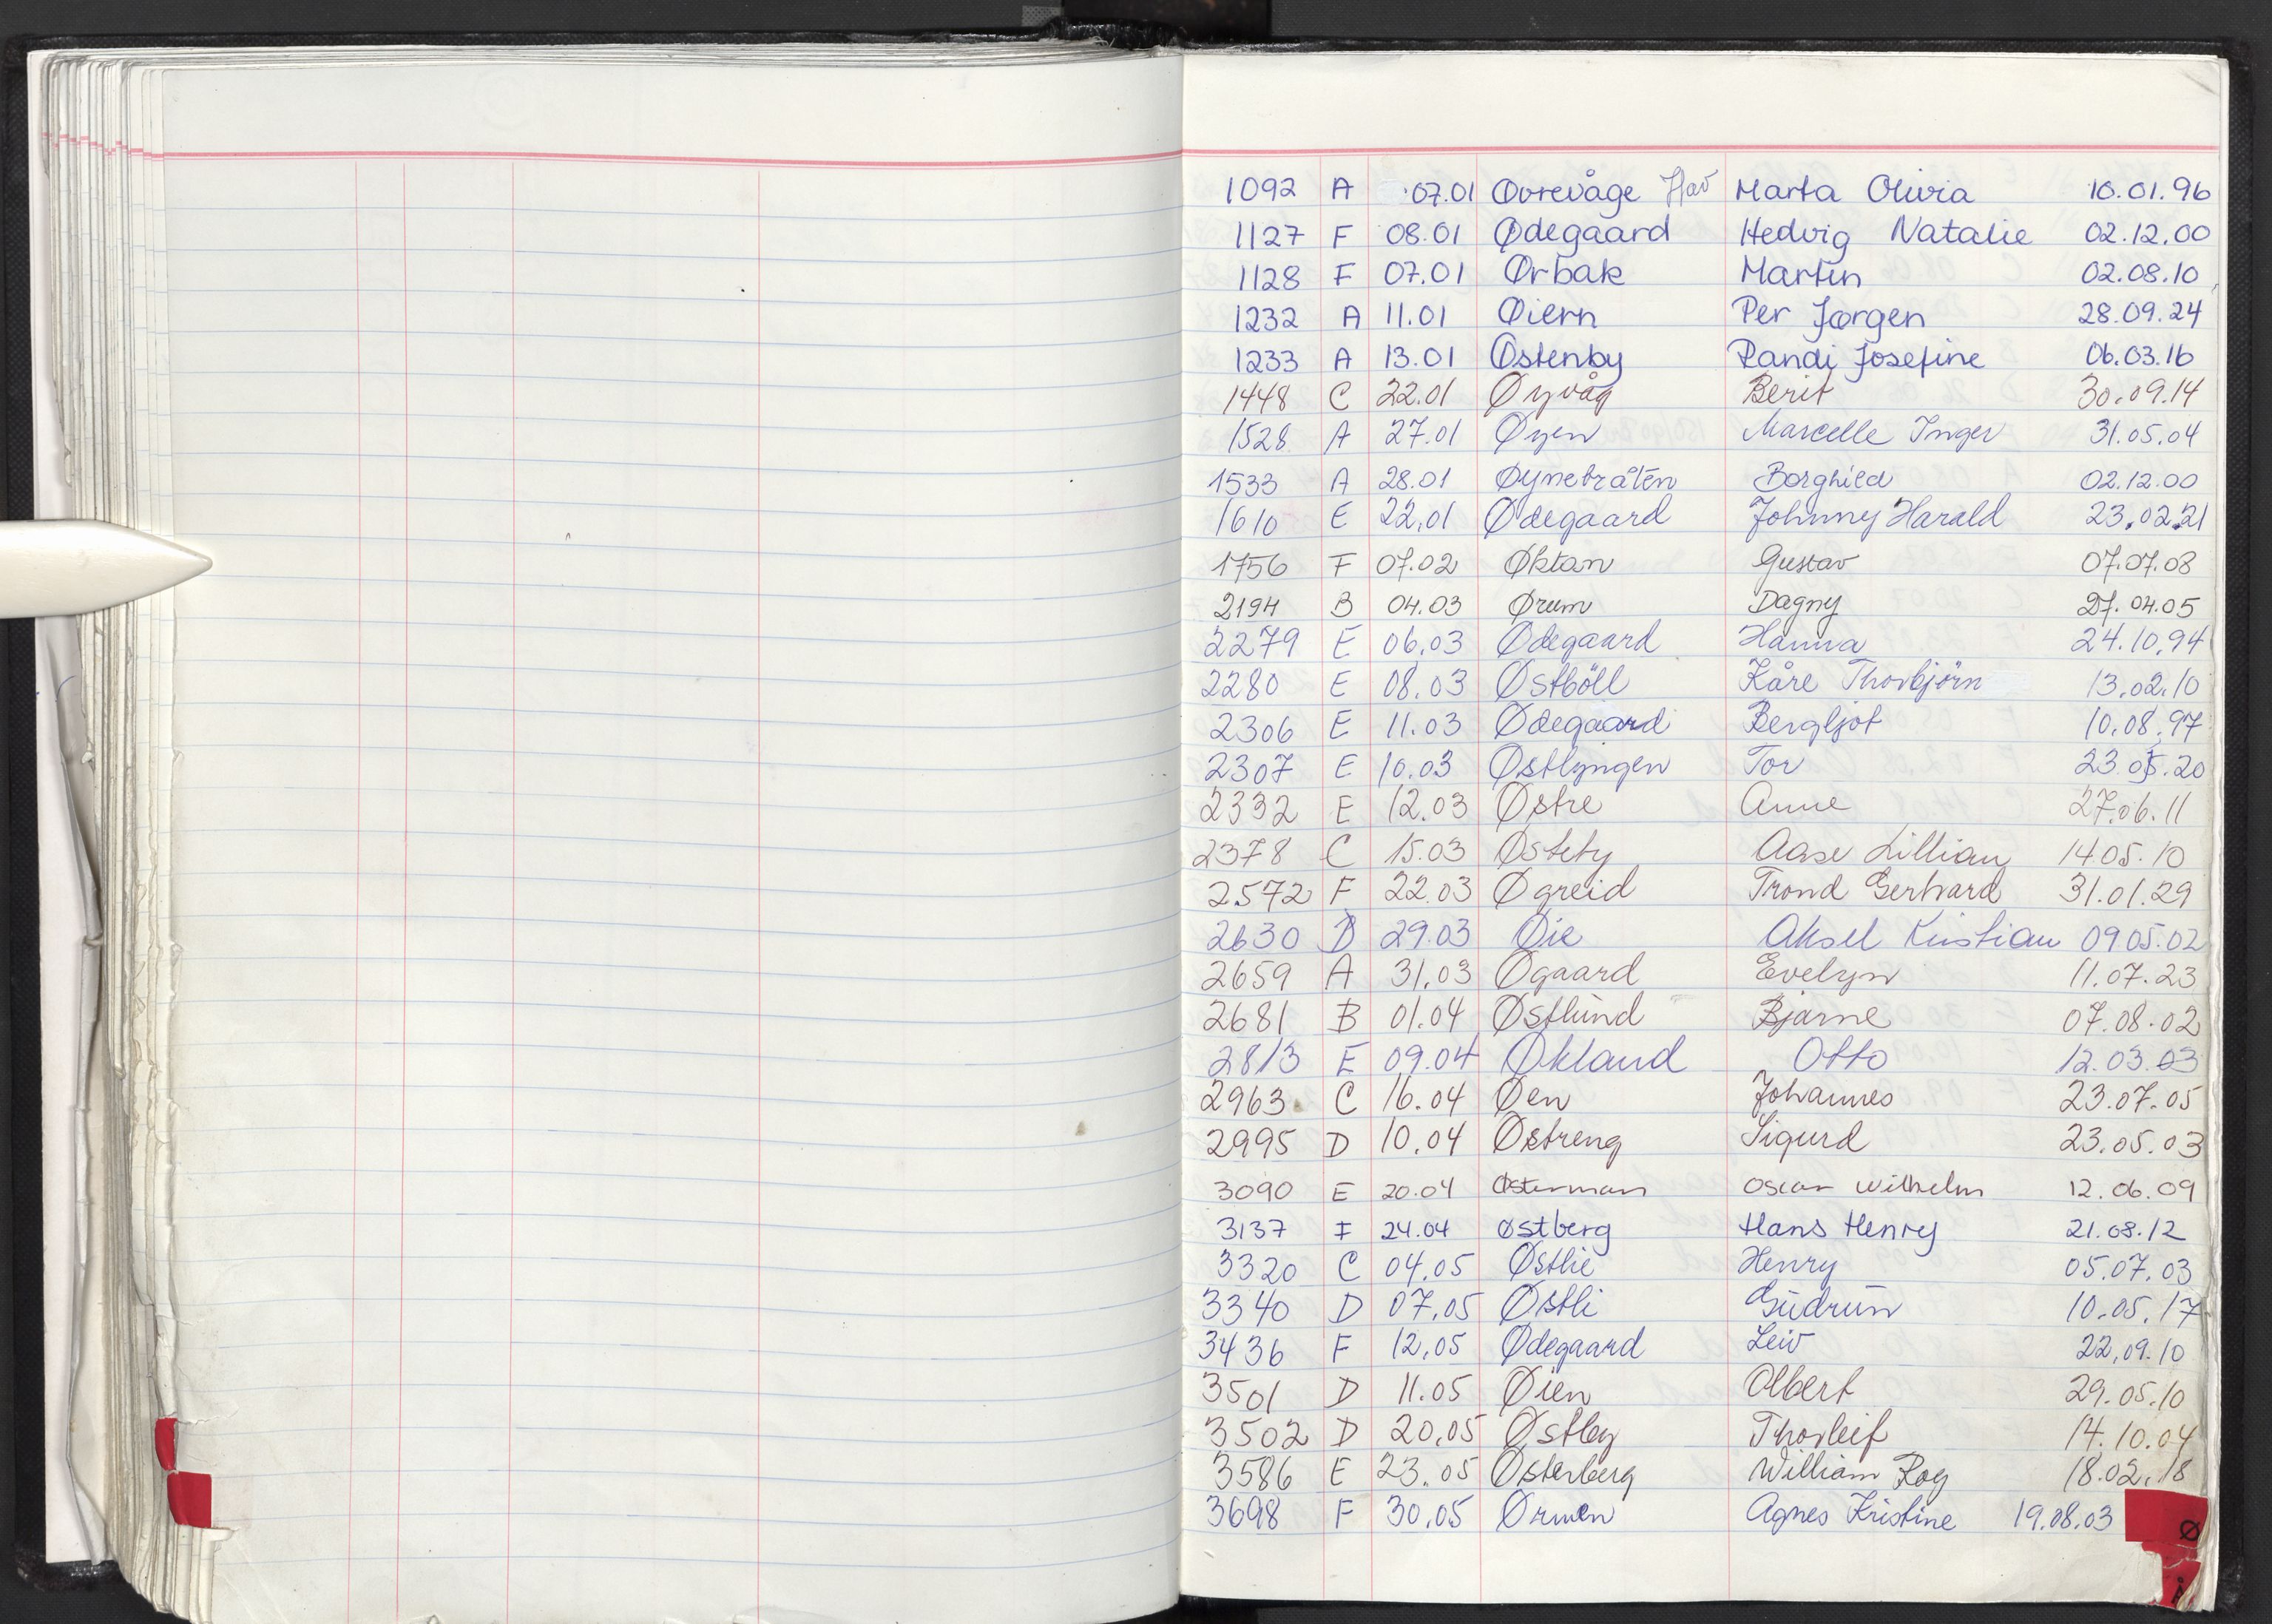 1092 A 07.01 Øvrevåge Hav Marta Olivia 10.01.96
1127 F 08.01 Ødegaard Hedvig Natalie 02.12.00
1128 F 07.01 Ørbak Martin 02.08.10
1232 A 11.01 Øiern Per Jørgen 28.09.24
1233 A 13.01 Østenby Randi Josefine 06.03.16
1448 C 22.01 Øyvåg Berit 30.09.14
1528 A 27.01 Øyen Marcelle Inger 31.05.04
1533 A 28.01 Øynebråten Borghild 02.12.00
1610 E 22.01 Ødegaard Johnny Harald 23.02.21
1756 F 07.02 Øktan Gustav 07.07.08
2194 B 04.03 Ørum Dagny 27.04.05
2279 E 06.03 Ødegaard Hanna 24.10.94
2280 E 08.03 Østböll Kåre Thorbjörn 13.02.10
2306 E 11.03 Ødegaard Bergljot 10.08.97
2307 E 10.03 Østlyngen Tor 23.05.20
2332 E 12.03 Østre Anne 27.06.11
2378 C 15.03 Østby Aase Lillian 14.05.10
2572 F 22.03 Øgreid Trond Gerhard 31.01.29
2630 D 29.03 Øie Aksel Kristian 09.05.02
2659 A 31.03 Øgaard Evelyn 11.07.23
2681 B 01.04 Østlund Bjarne 07.08.02
2813 E 09.04 Økland Otto 12.03.03
2963 C 16.04 Øen Johannes 23.07.05
2995 D 10.04 Østreng Sigurd 23.05.03
3090 E 20.04 Østerman Oscar Wilhelm 12.06.09
3137 F 24.04 Østberg Hans Henry 21.08.12
3320 C 04.05 Østlie Henry 05.07.03
3340 D 07.05 Østli Gudrun 10.05.17
3436 F 12.05 Ødegaard Leiv 22.09.10
3501 D 11.05 Øien Olbert 29.05.10
3502 D 20.05 Østby Thorleif 14.10.04
3586 E 23.05 Østerberg William Roy 18.02.18
3698 F 30.05 Ørmen Agnes Kristine 19.08.03
Ø